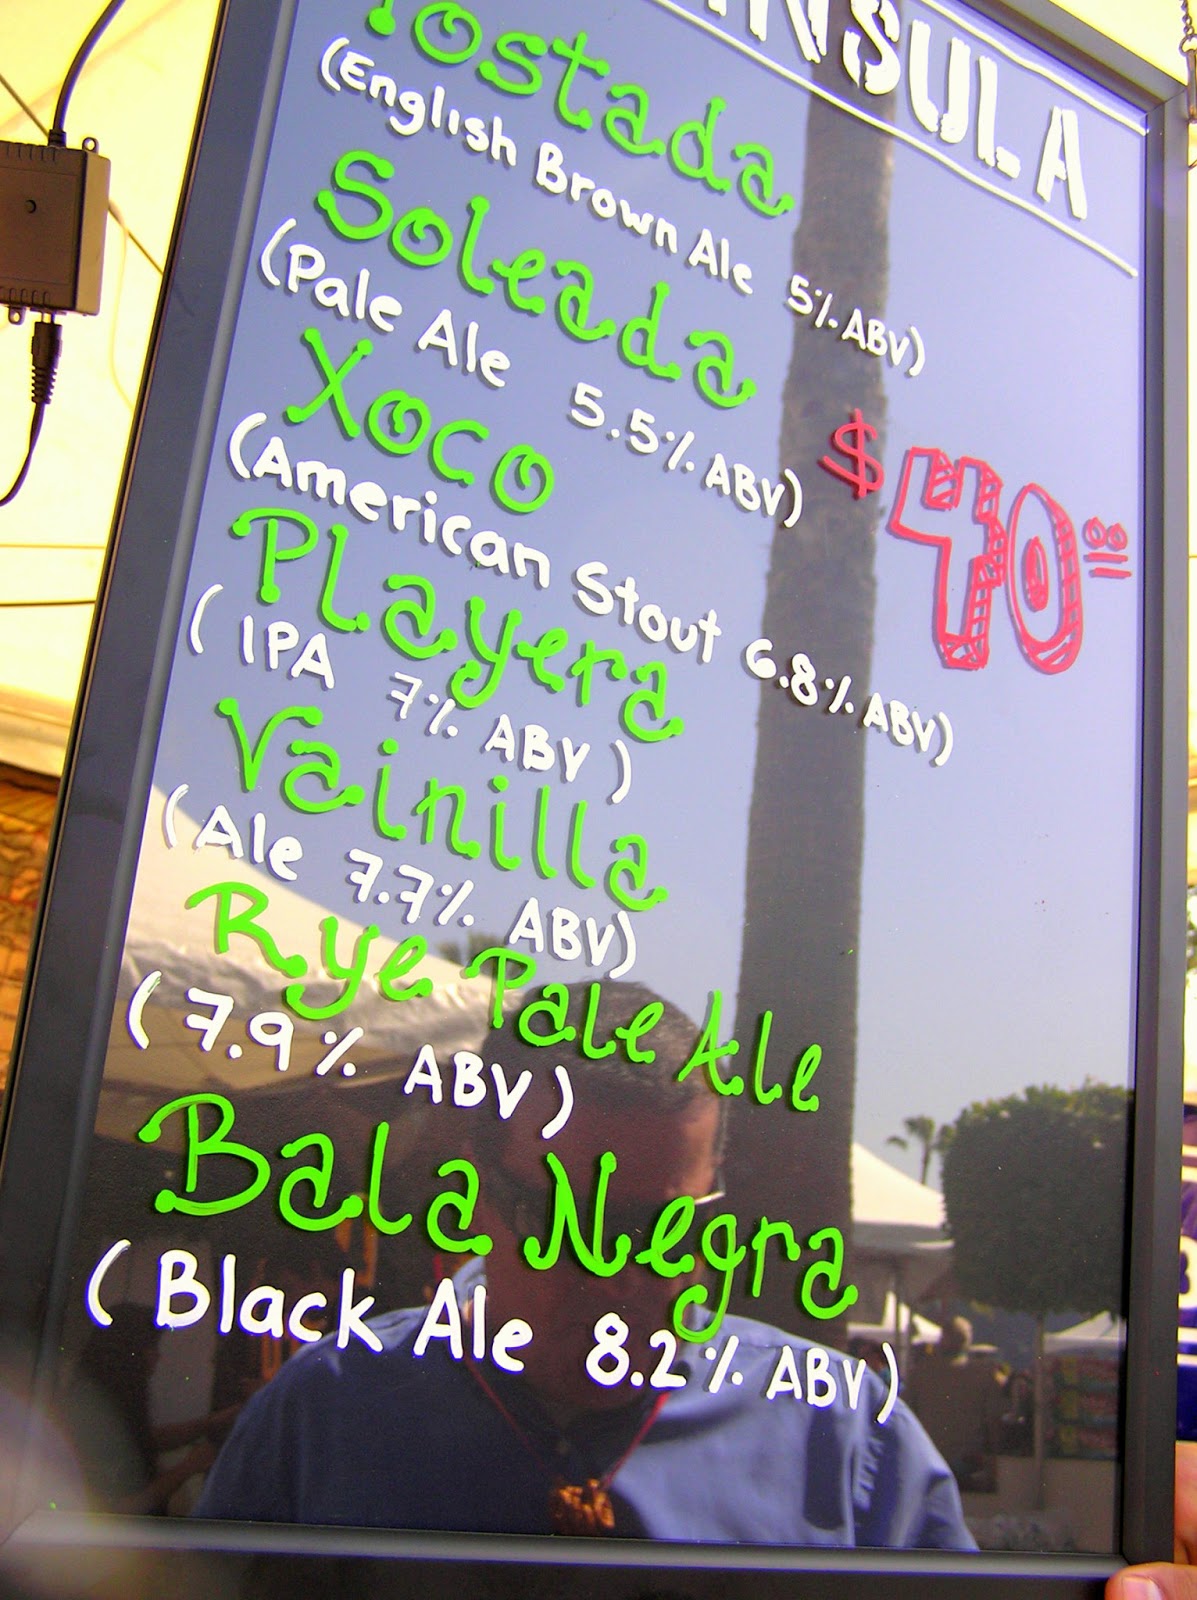 INSULA
Tostada
(English Brown Ale 5% ABV)
Soleada
(Pale Ale 5.5% ABV)
$40.00
Xoco
(American Stout 6.8% ABV)
Playera
( IPA 7% ABV )
Vainilla
(Ale 7.7% ABV)
Rye Pale Ale
( 7.9% ABV )
Bala Negra
( Black Ale 8.2% ABV )